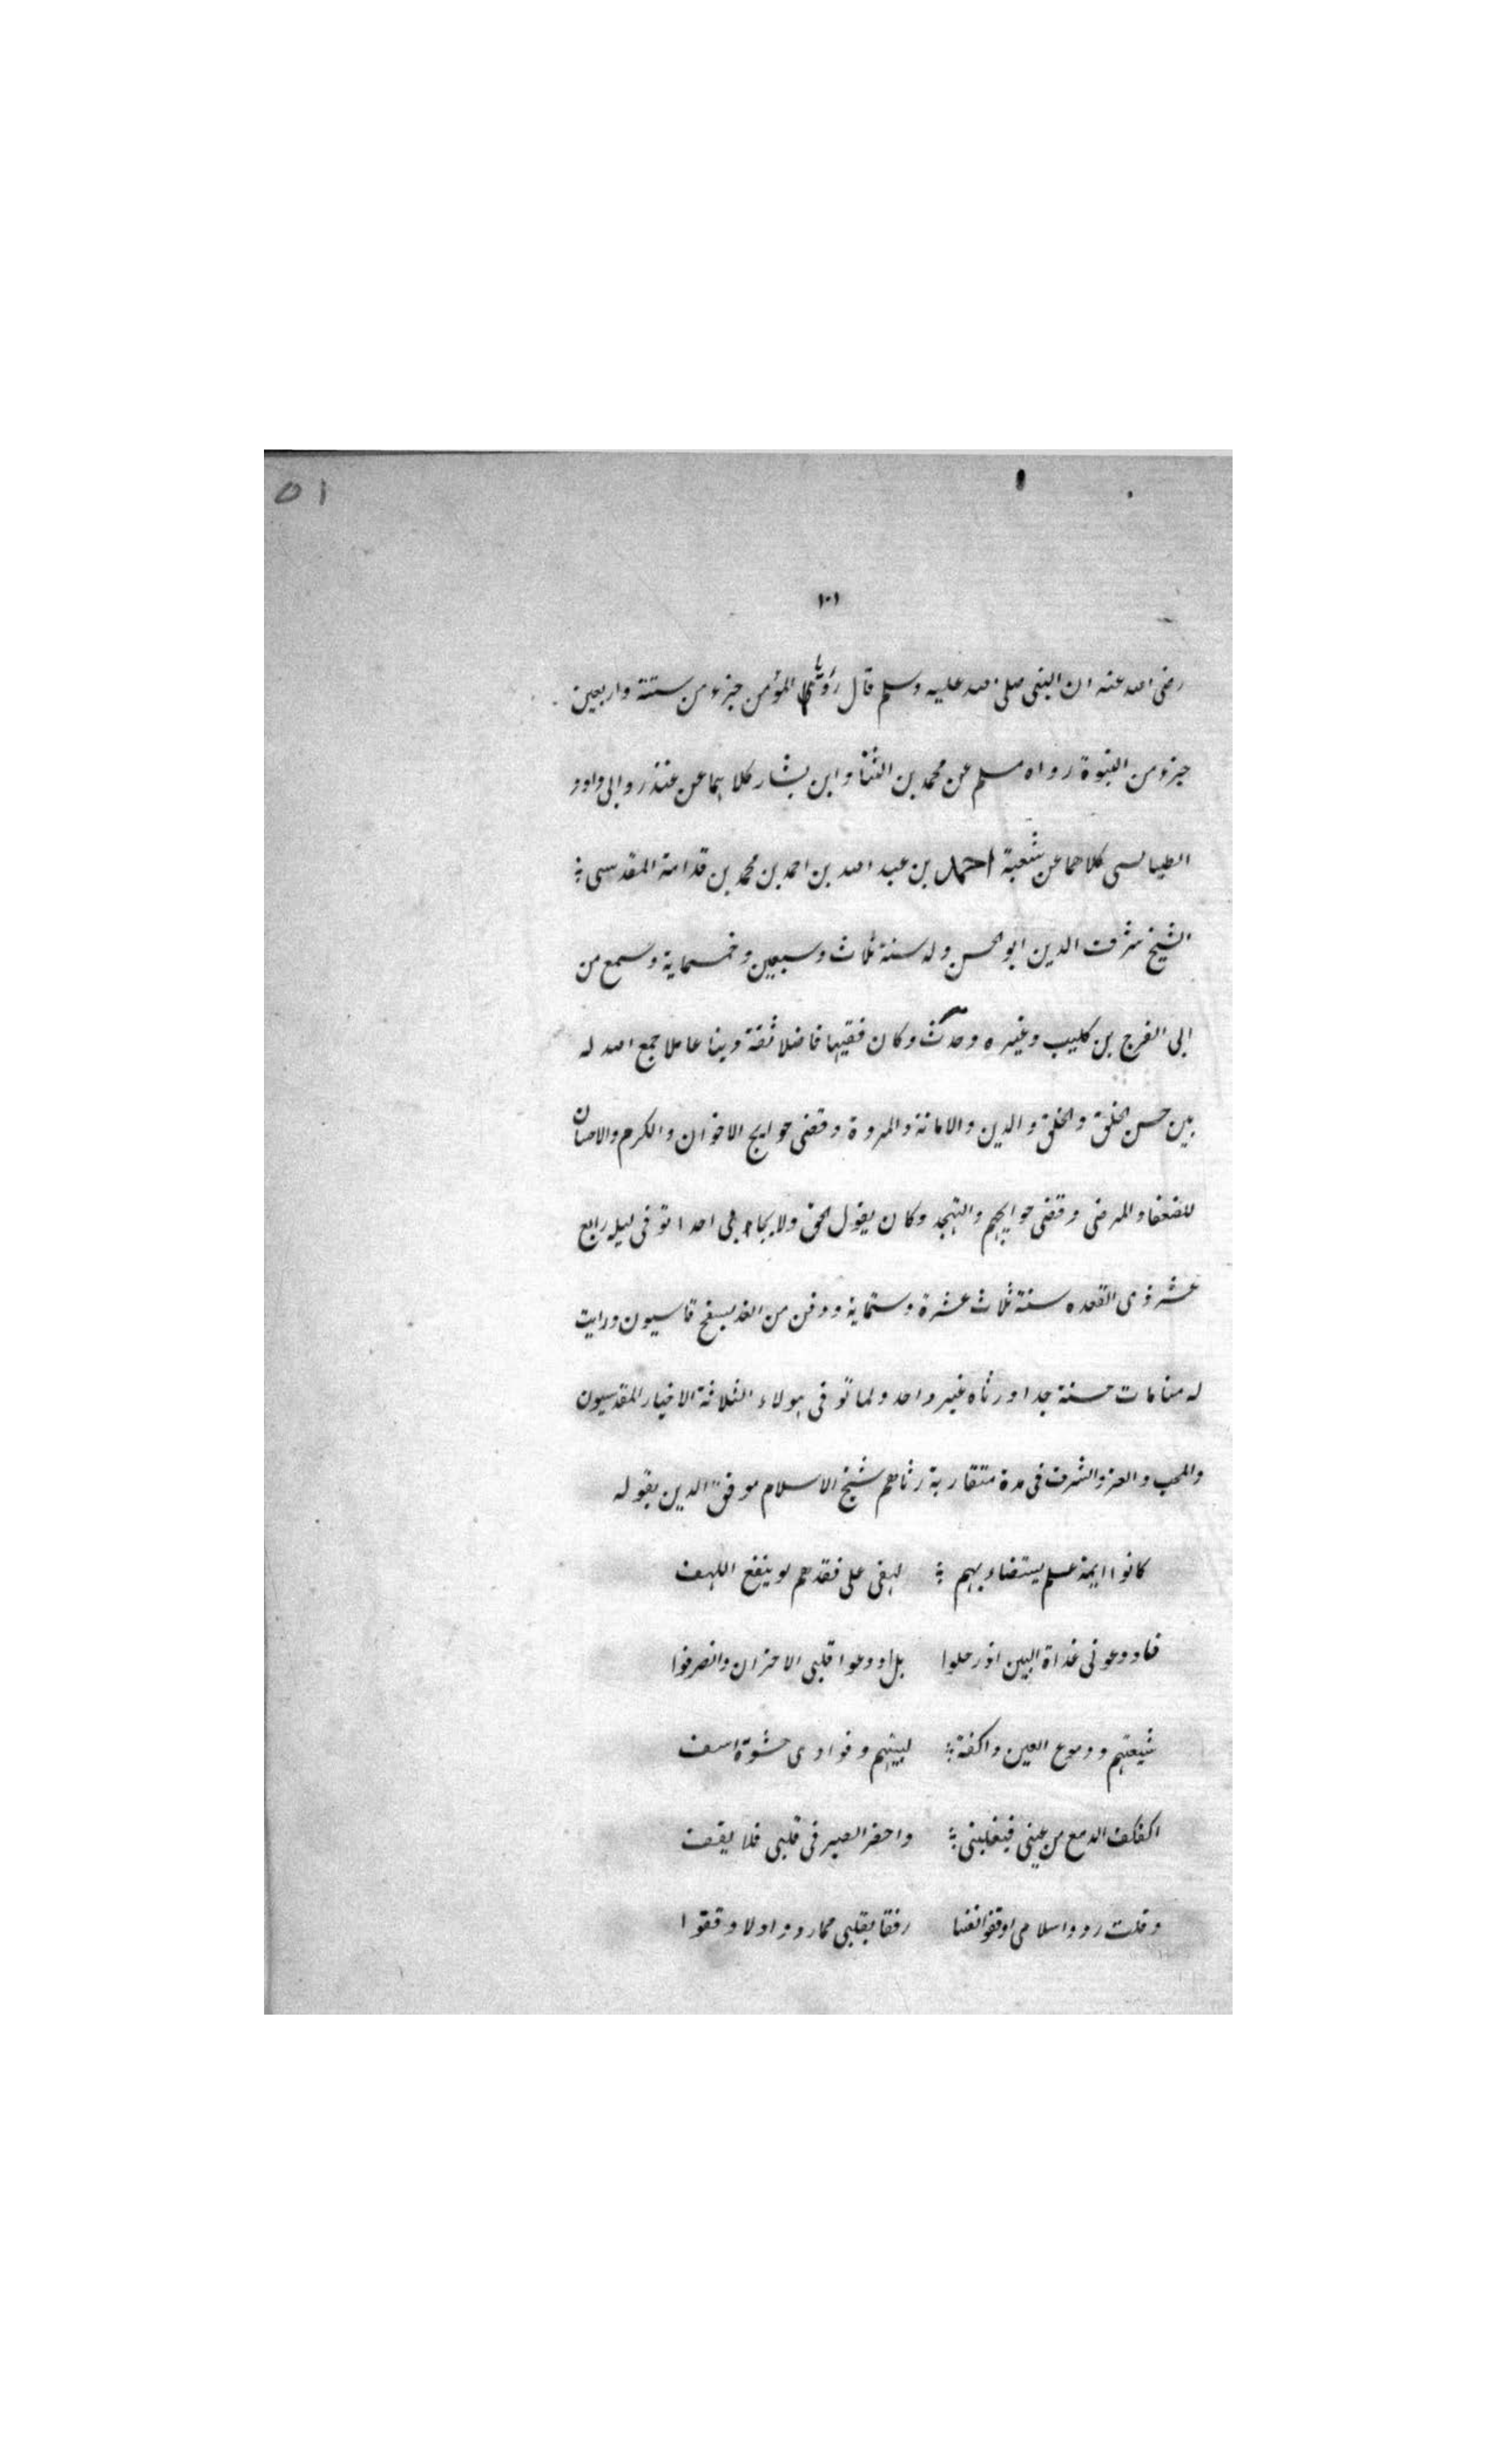 ٥١
١٠١
رضى الله عنه ان النبى صلى الله عليه وسلم قال رؤيا المؤمن جزء من ستة واربعين
جزء من النبوة رواه مسلم عن محمد بن المثنا وابن بشار كلاهما عن غندر وابى داود
الطيالسى كلاهما عن شعبة احمد بن عبد الله بن احمد بن محمد بن قدامة المقدسى
الشيخ شرف الدين ابو الحسن ولد سنة ثلاث وسبعين وخمسماية وسمع من
ابى الفرج بن كليب وغيره وحدث وكان فقيها فاضلا ثقة دينا عاملا جمع الله له
بين حسن الخلق والخلق والدين والامانة والمروة وقضى حوايج الاخوان والكرم والاحسان
للضعفا والمرضى وقضى حوايجهم والتهجد وكان يقول الحق ولا يحابى احدا توفى ليله رابع
عشر ذى القعده سنة ثلاث عشرة وستماية ودفن من الغد بسفح قاسيون ورايت
له منامات حسنة جدا ورثاه غير واحد ولما توفى هولاء الثلاثة الاخيار المقدسيون
والمحب والعز والشرف فى مدة متقاربة رثاهم شيخ الاسلام موفق الدين بقوله
كانوا ايمة علم يستضاء بهم لهفى على فقدهم لو ينفع اللهف
فاودعونى غداة البين اذ رحلوا بل اودعوا قلبى الاحزان وانصرفوا
شيعتهم ودموع العين واكفة لبينهم وفوادى حشوة اسف
اكفكف الدمع من عينى فيغلبنى واحضر الصبر فى قلبى فلا يقف
وقلت ردوا سلامى او قفوا نفسا رفقا بقلبى فما ردوا ولا وقفوا